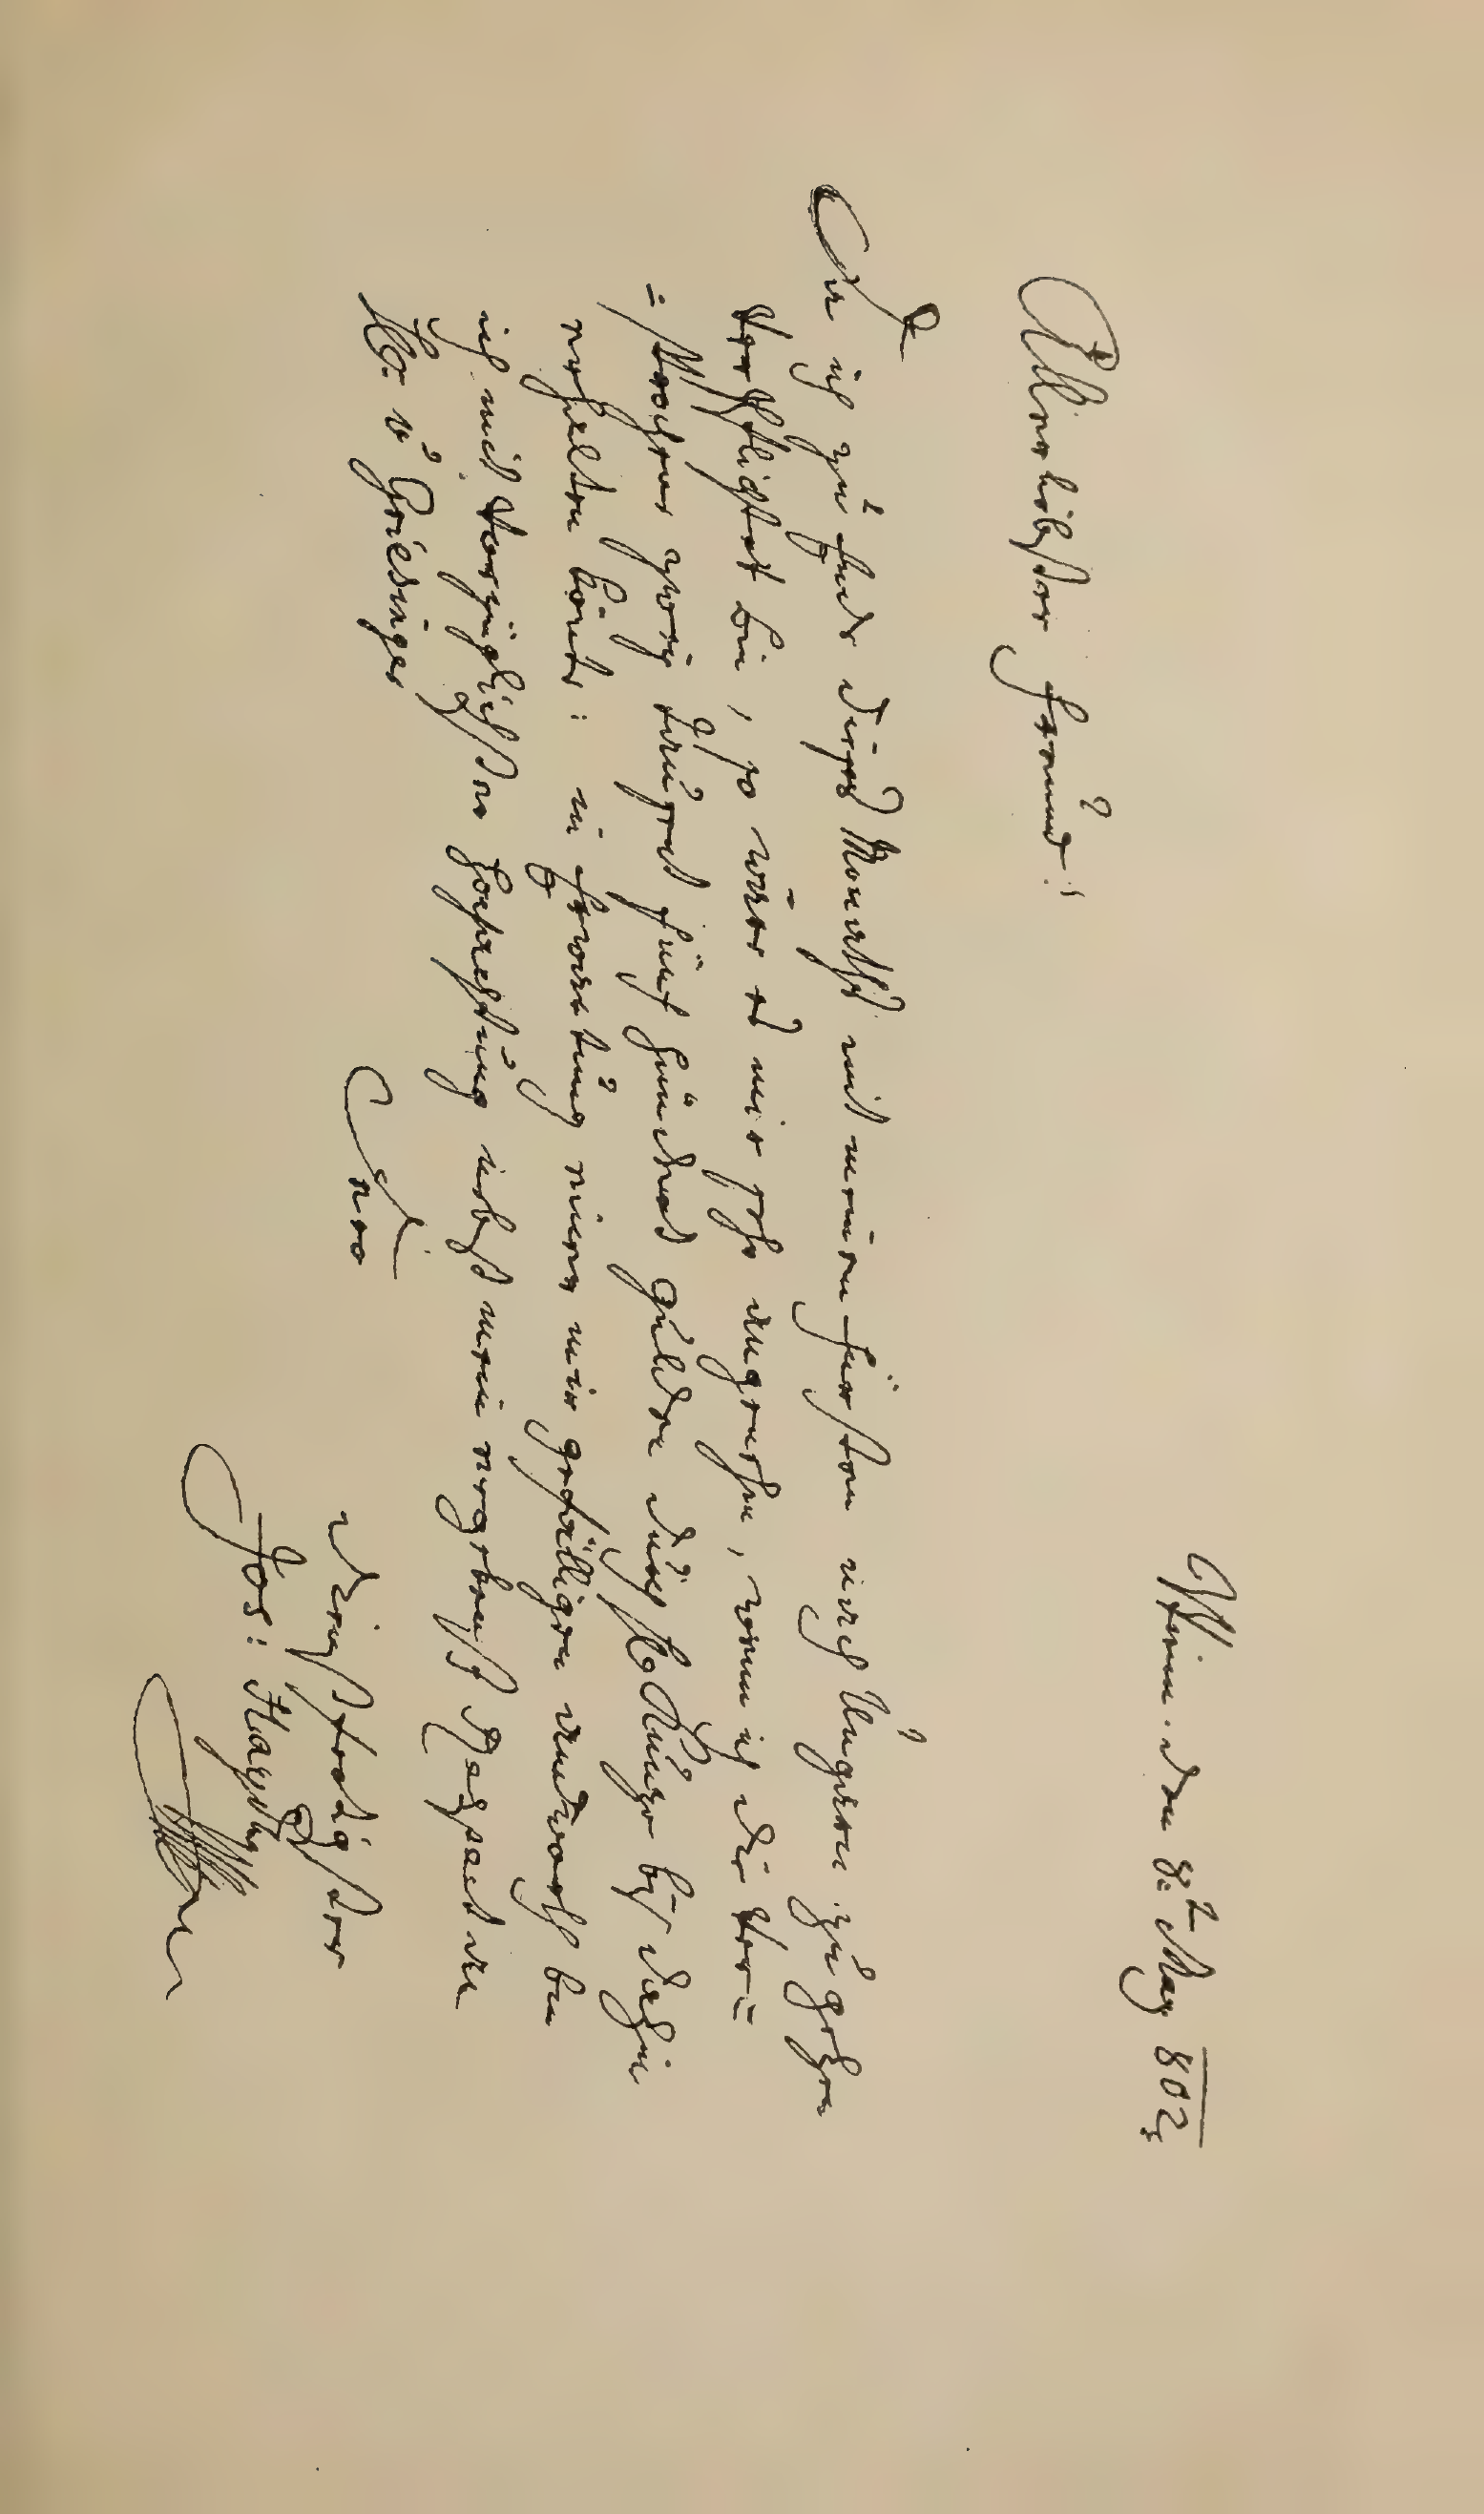 Wienn. den 8ᵗ May 802
Allerliebster Freund!
Da ich zu Ende dieses Monaths mit meinen Fürsten nach Ungarn zu gehen
verpflichtet bin, so wäre es mir sehr angenehm, wenn ich die ver=
=sprochene zwey tausend fünf hundert gulden durch H. Kunze bis dahin
erhalten könte: in Erwartung einer mir gefälligen andworth bin
ich mit vorzüglichster Hochachtung nebst mein ergebensten Respect an
H. v Griesinger
Dero
dienstfertigster
Jos: Haydn